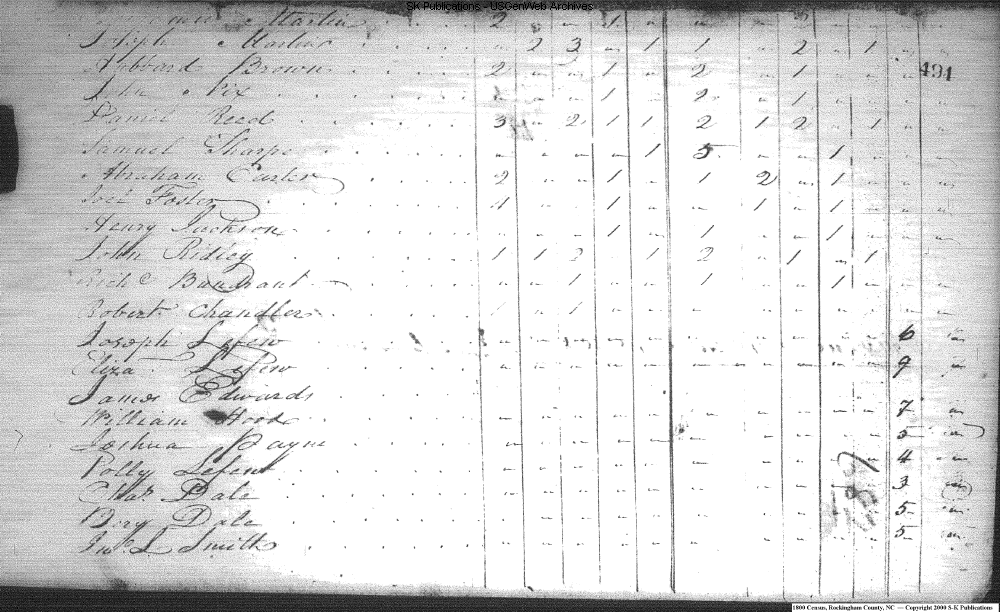 SK Publications - USGenWeb Archives
Martin 2 " " 1
Joseph Martin " 2 3 " 1 1 " 2 " 1 " "
Hubbard Brown 2 " " 1 " 2 " 1 " " "
431
John Nix " " 1 " 2 " 1 " " "
Daniel Reed 3 " 2 1 1 2 1 2 " 1 " "
Samuel Sharpe " " " " 1 5 " " 1 " " "
Abraham Carter 2 " " 1 " 1 2 " 1 " " "
Joel Foster 1 " " 1 " " 1 " 1 " " "
Henry Jackson " " " 1 " 1 " " 1 " " "
John Ridley 1 1 2 " 1 2 " 1 " 1 " "
Rich'd " " 1 " " 1 " " 1 " " "
Robert Chandler 1 " 1 " " " " " " " " "
Joseph Lefew " " " " " " " " " " 6 "
Eliza Lefew " " " " " " " " " " 9 "
James Edwards
William Hood " " " " " " " " " " 7 "
Joshua Payne " " " " " " " " " " 5 "
Polly Lefew " " " " " " " " " " 4 "
Chas Dale " " " " " " " " " " 3 "
Dale " " " " " " " " " 5 "
Jno L Smith " " " " " " " " " 5 "
1800 Census, Rockingham County, NC — Copyright 2000 S-K Publications